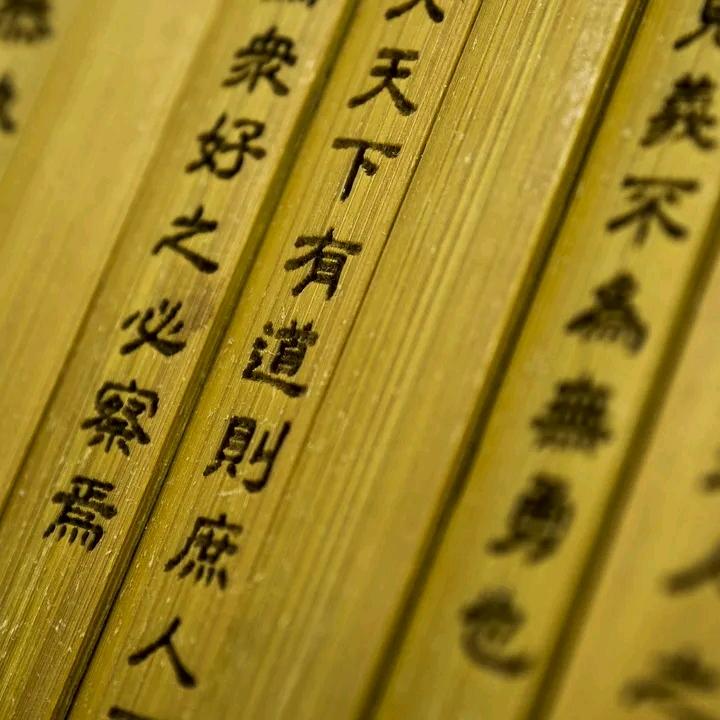 見義不為無勇也
天下有道則庶人
衆好之必察焉